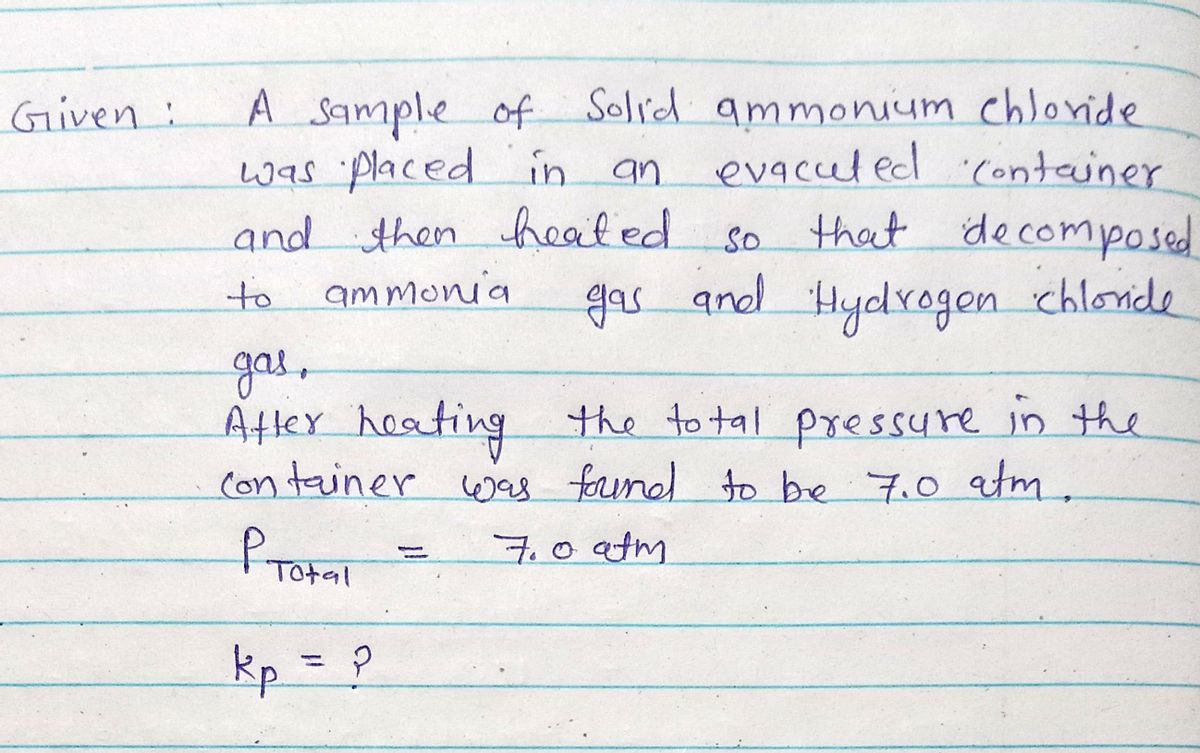 Given : A sample of Solid ammonium chloride
was placed in an evacuted container
and then heated so that decomposed
to ammonia gas and Hydrogen chloride
gas.
After heating the total pressure in the
container was found to be 7.0 atm.
P Total = 7.0 atm
kp = ?